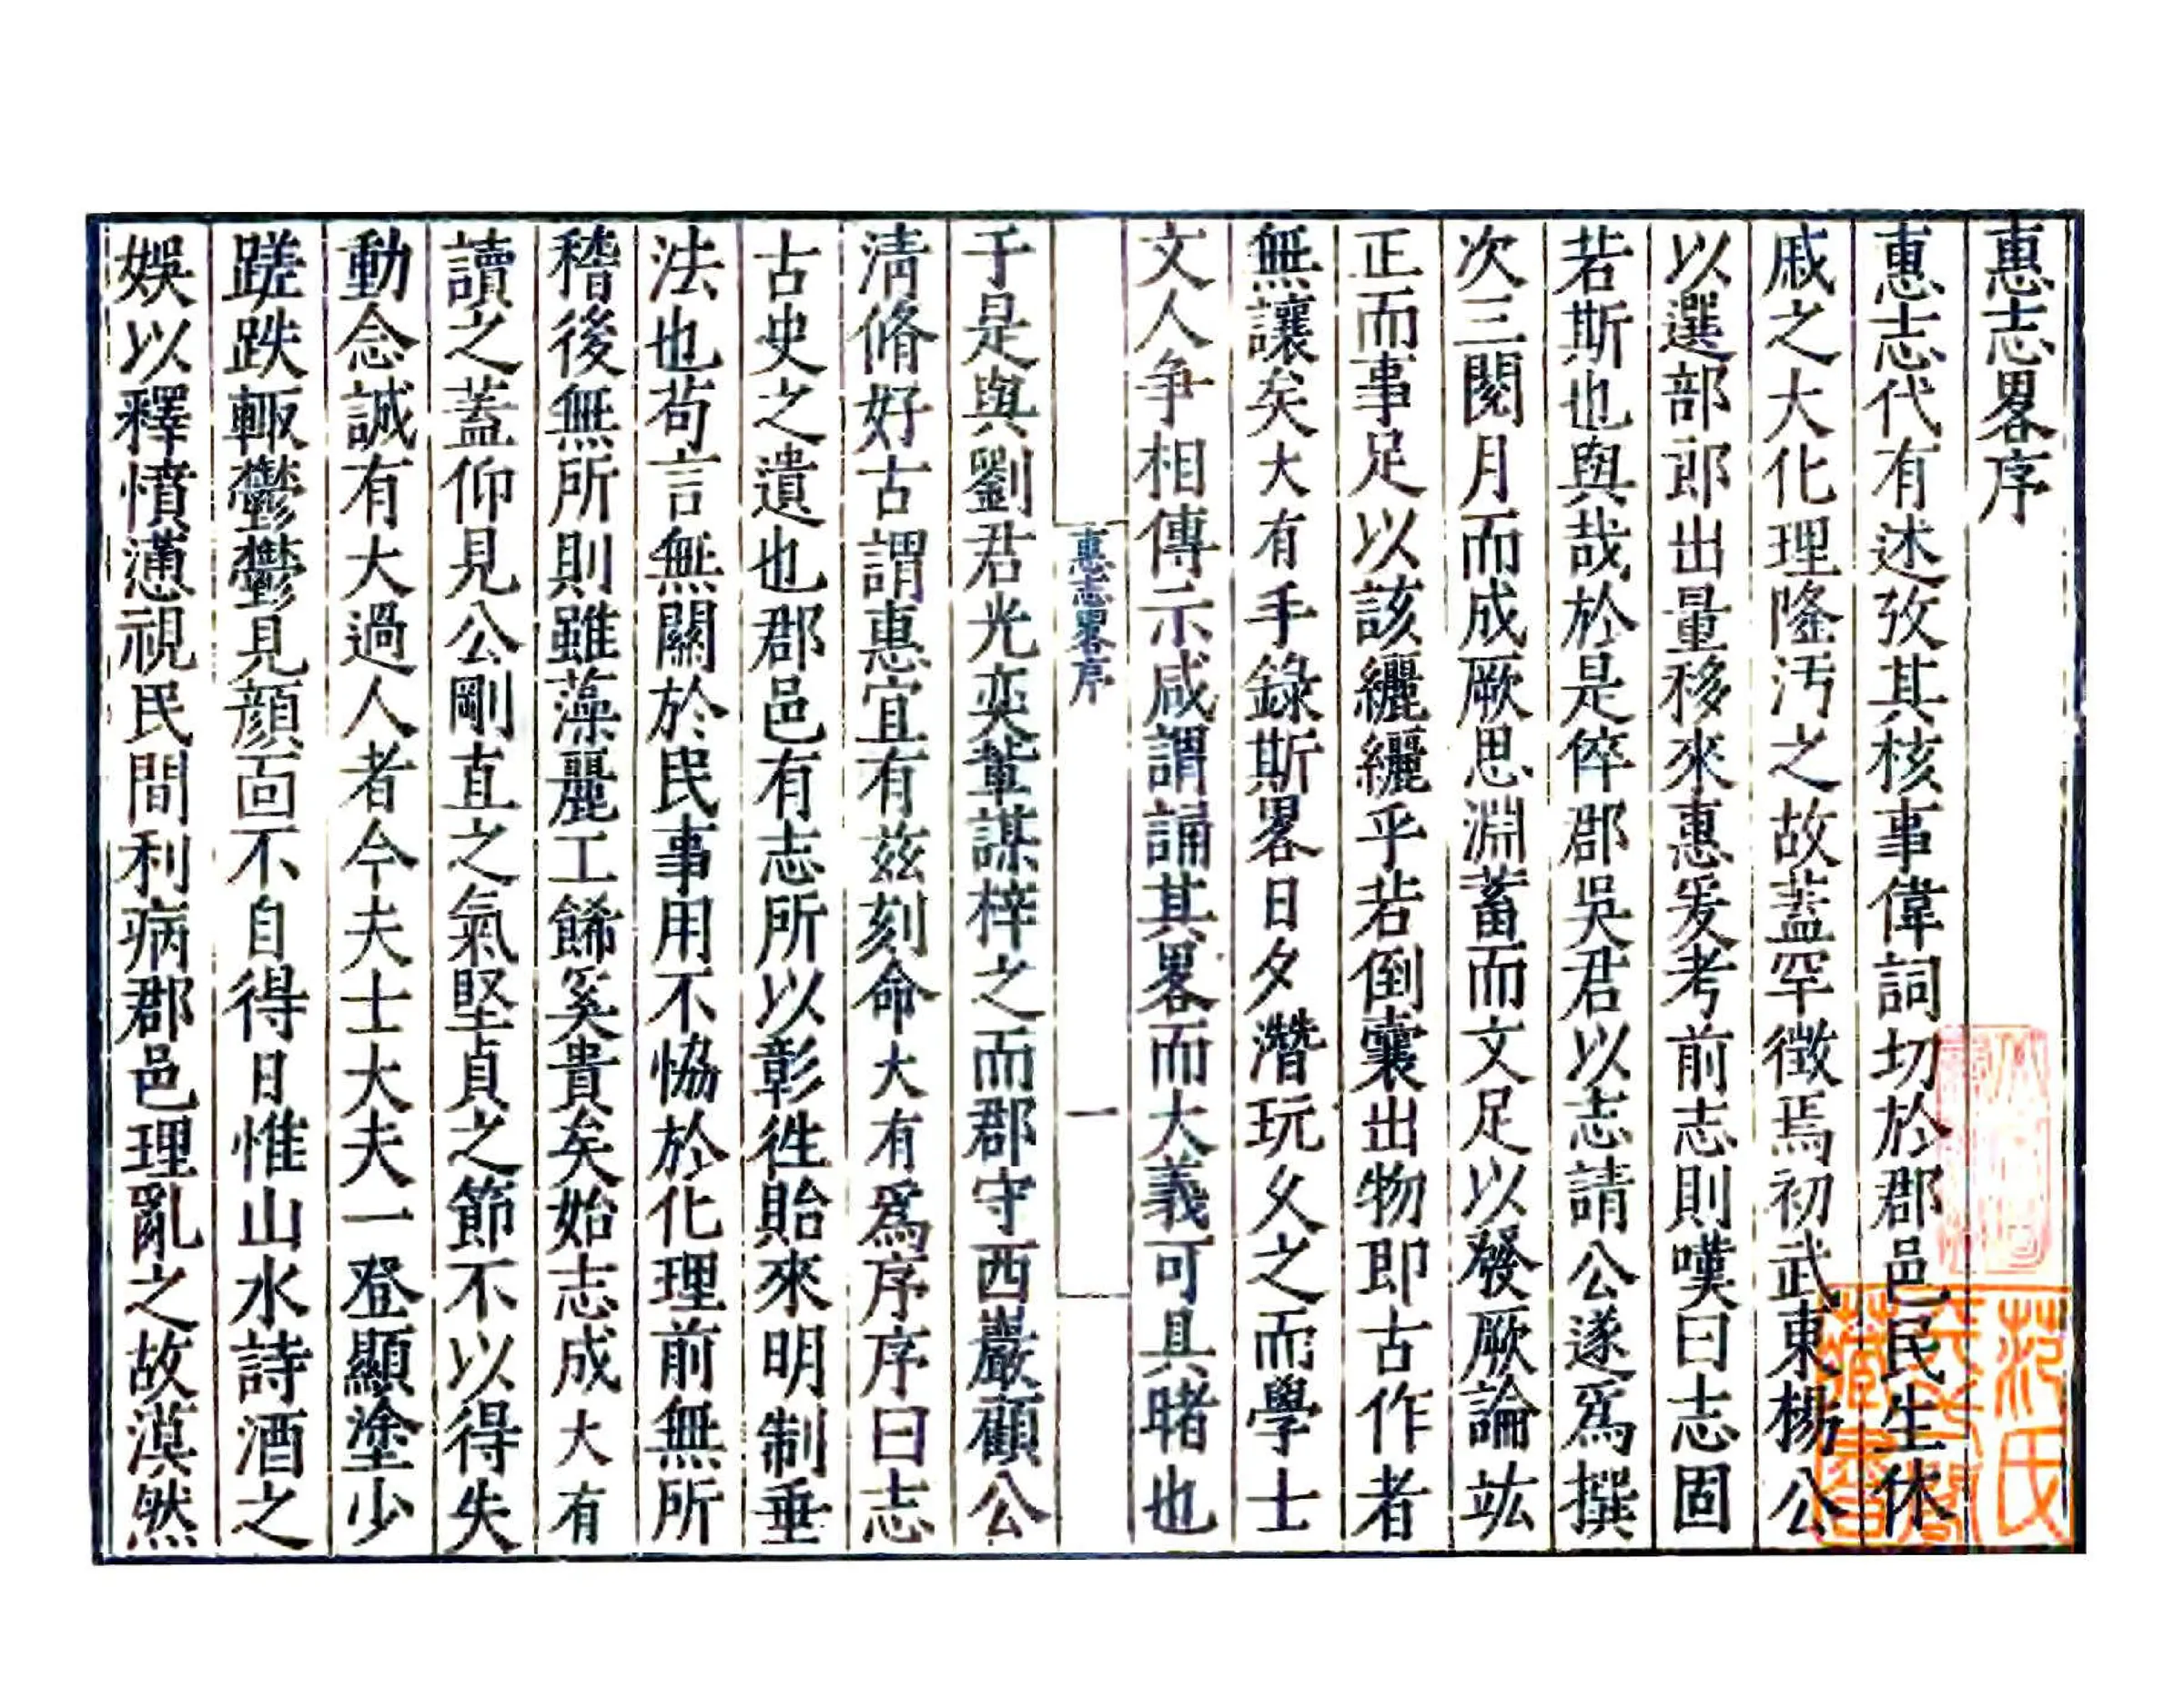 惠志畧序
惠志代有述攷其核事偉詞切於郡邑民生休
戚之大化理隆汚之故葢罕徴焉初武東楊公
以選部郎出量移來惠爰考前志則嘆曰志固
若斯也與哉於是倅郡吳君以志請公遂爲撰
次三閱月而成厥思淵蓄而文足以發厥論竑
正而事足以該纚纚乎若倒囊出物即古作者
無讓矣大有手錄斯畧日夕濳玩乆之而學士
文人争相傳示咸謂誦其畧而大義可具睹也
惠志畧序
一
于是與劉君光奕輩謀梓之而郡守西巖顧公
清脩好古謂惠宜有兹刻命大有爲序序曰志
古史之遺也郡邑有志所以彰徃貽來明制垂
法也茍言無關於民事用不恊於化理前無所
稽後無所則雖藻麗工餙奚貴矣始志成大有
讀之葢仰見公剛直之氣堅貞之節不以得失
動念誠有大過人者今夫士大夫一登顯塗少
蹉跌輙鬱鬱見顔靣不自得日惟山水詩酒之
娛以釋憤懣視民間利病郡邑理亂之故漠然
范氏
天一閣
藏書